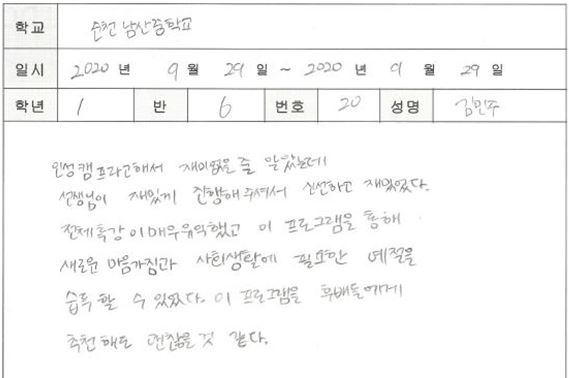 학교 순천 남산중학교
일시 2020 년 9 월 29 일 ~ 2020 년 9 월 29 일
학년 1 반 6 번호 20 성명 김민주
인성캠프라고해서 재미없을 줄 알았는데
선생님이 재밌게 진행해주셔서 신선하고 재밌었다.
전체특강이매우유익했고 이 프로그램을 통해
새로운 마음가짐과 사회생활에 필요한 예절을
습득 할 수 있었다. 이 프로그램을 후배들에게
추천해도 괜찮을 것 같다.